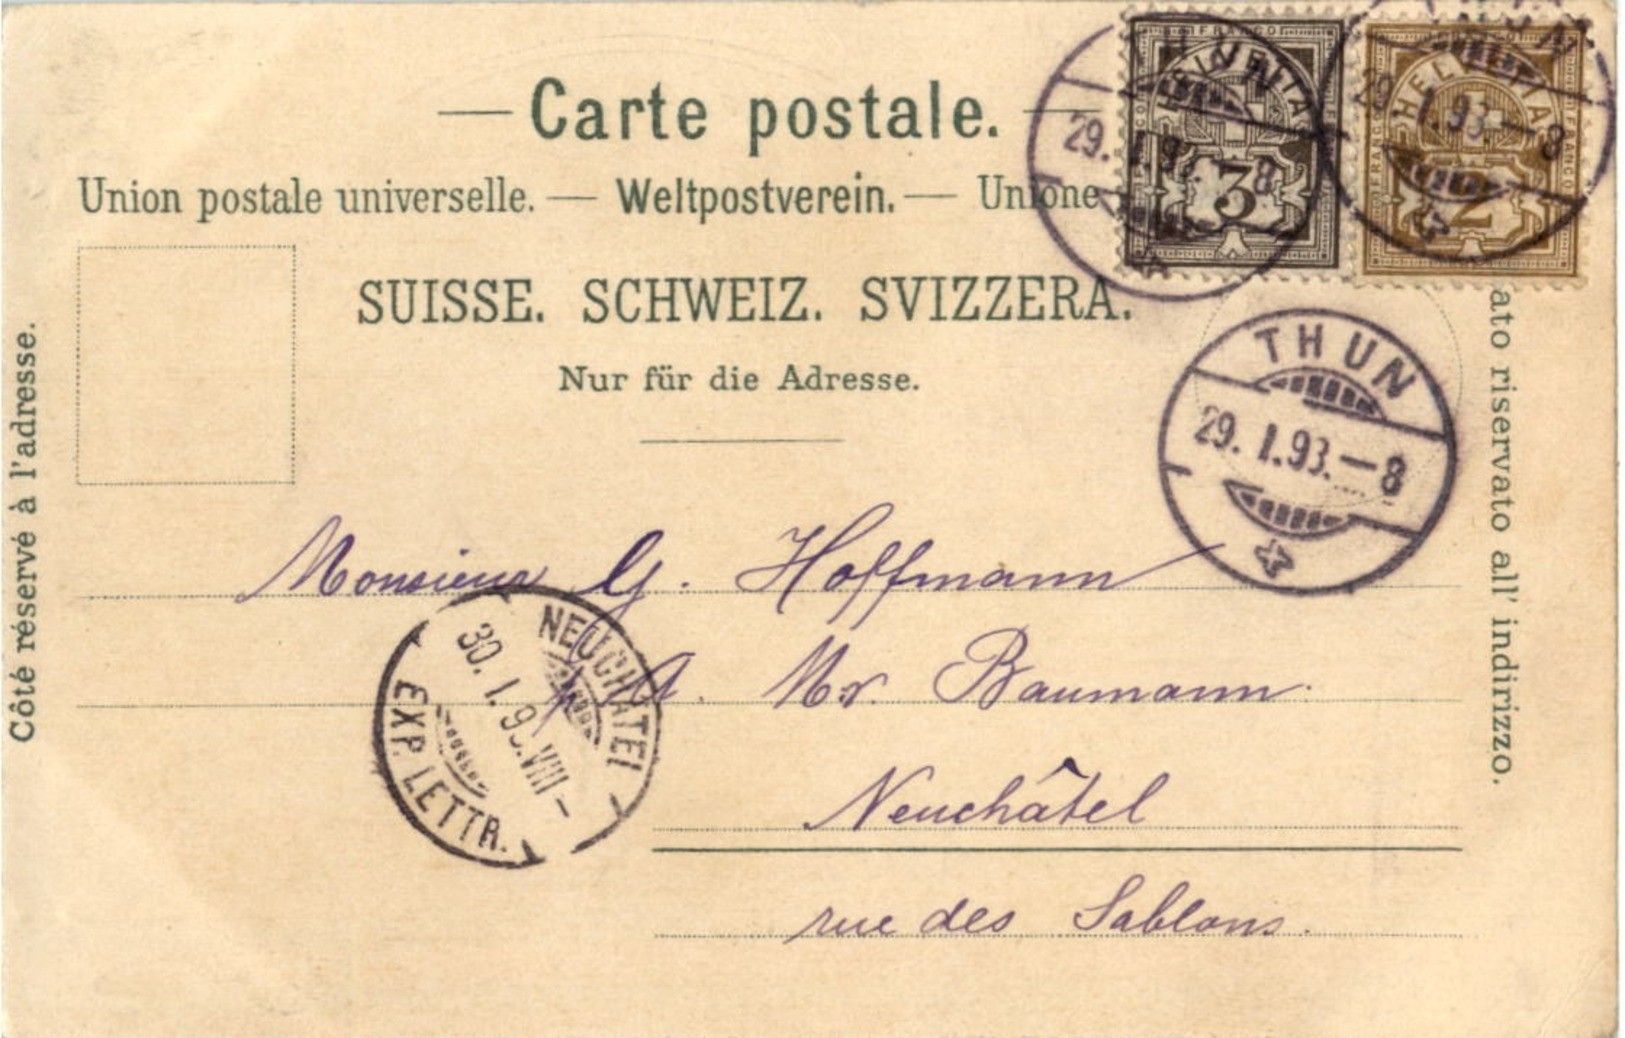 Carte postale.
Union postale universelle. — Weltpostverein. — Unione
SUISSE. SCHWEIZ. SVIZZERA.
Nur für die Adresse.
Côté réservé à l'adresse.
ato riservato all' indirizzo.
FRANCO
HELVETIA
3
FRANCO
HELVETIA
2
29. I. 93. — 8
THUN
29. I. 93. — 8
THUN
29. I. 93. — 8
Monsieur G. Hoffmann
p. A. Mr Baumann.
Neuchâtel
rue des Sablons.
NEUCHATEL
30. I. 93. VIII —
EXP. LETTR.